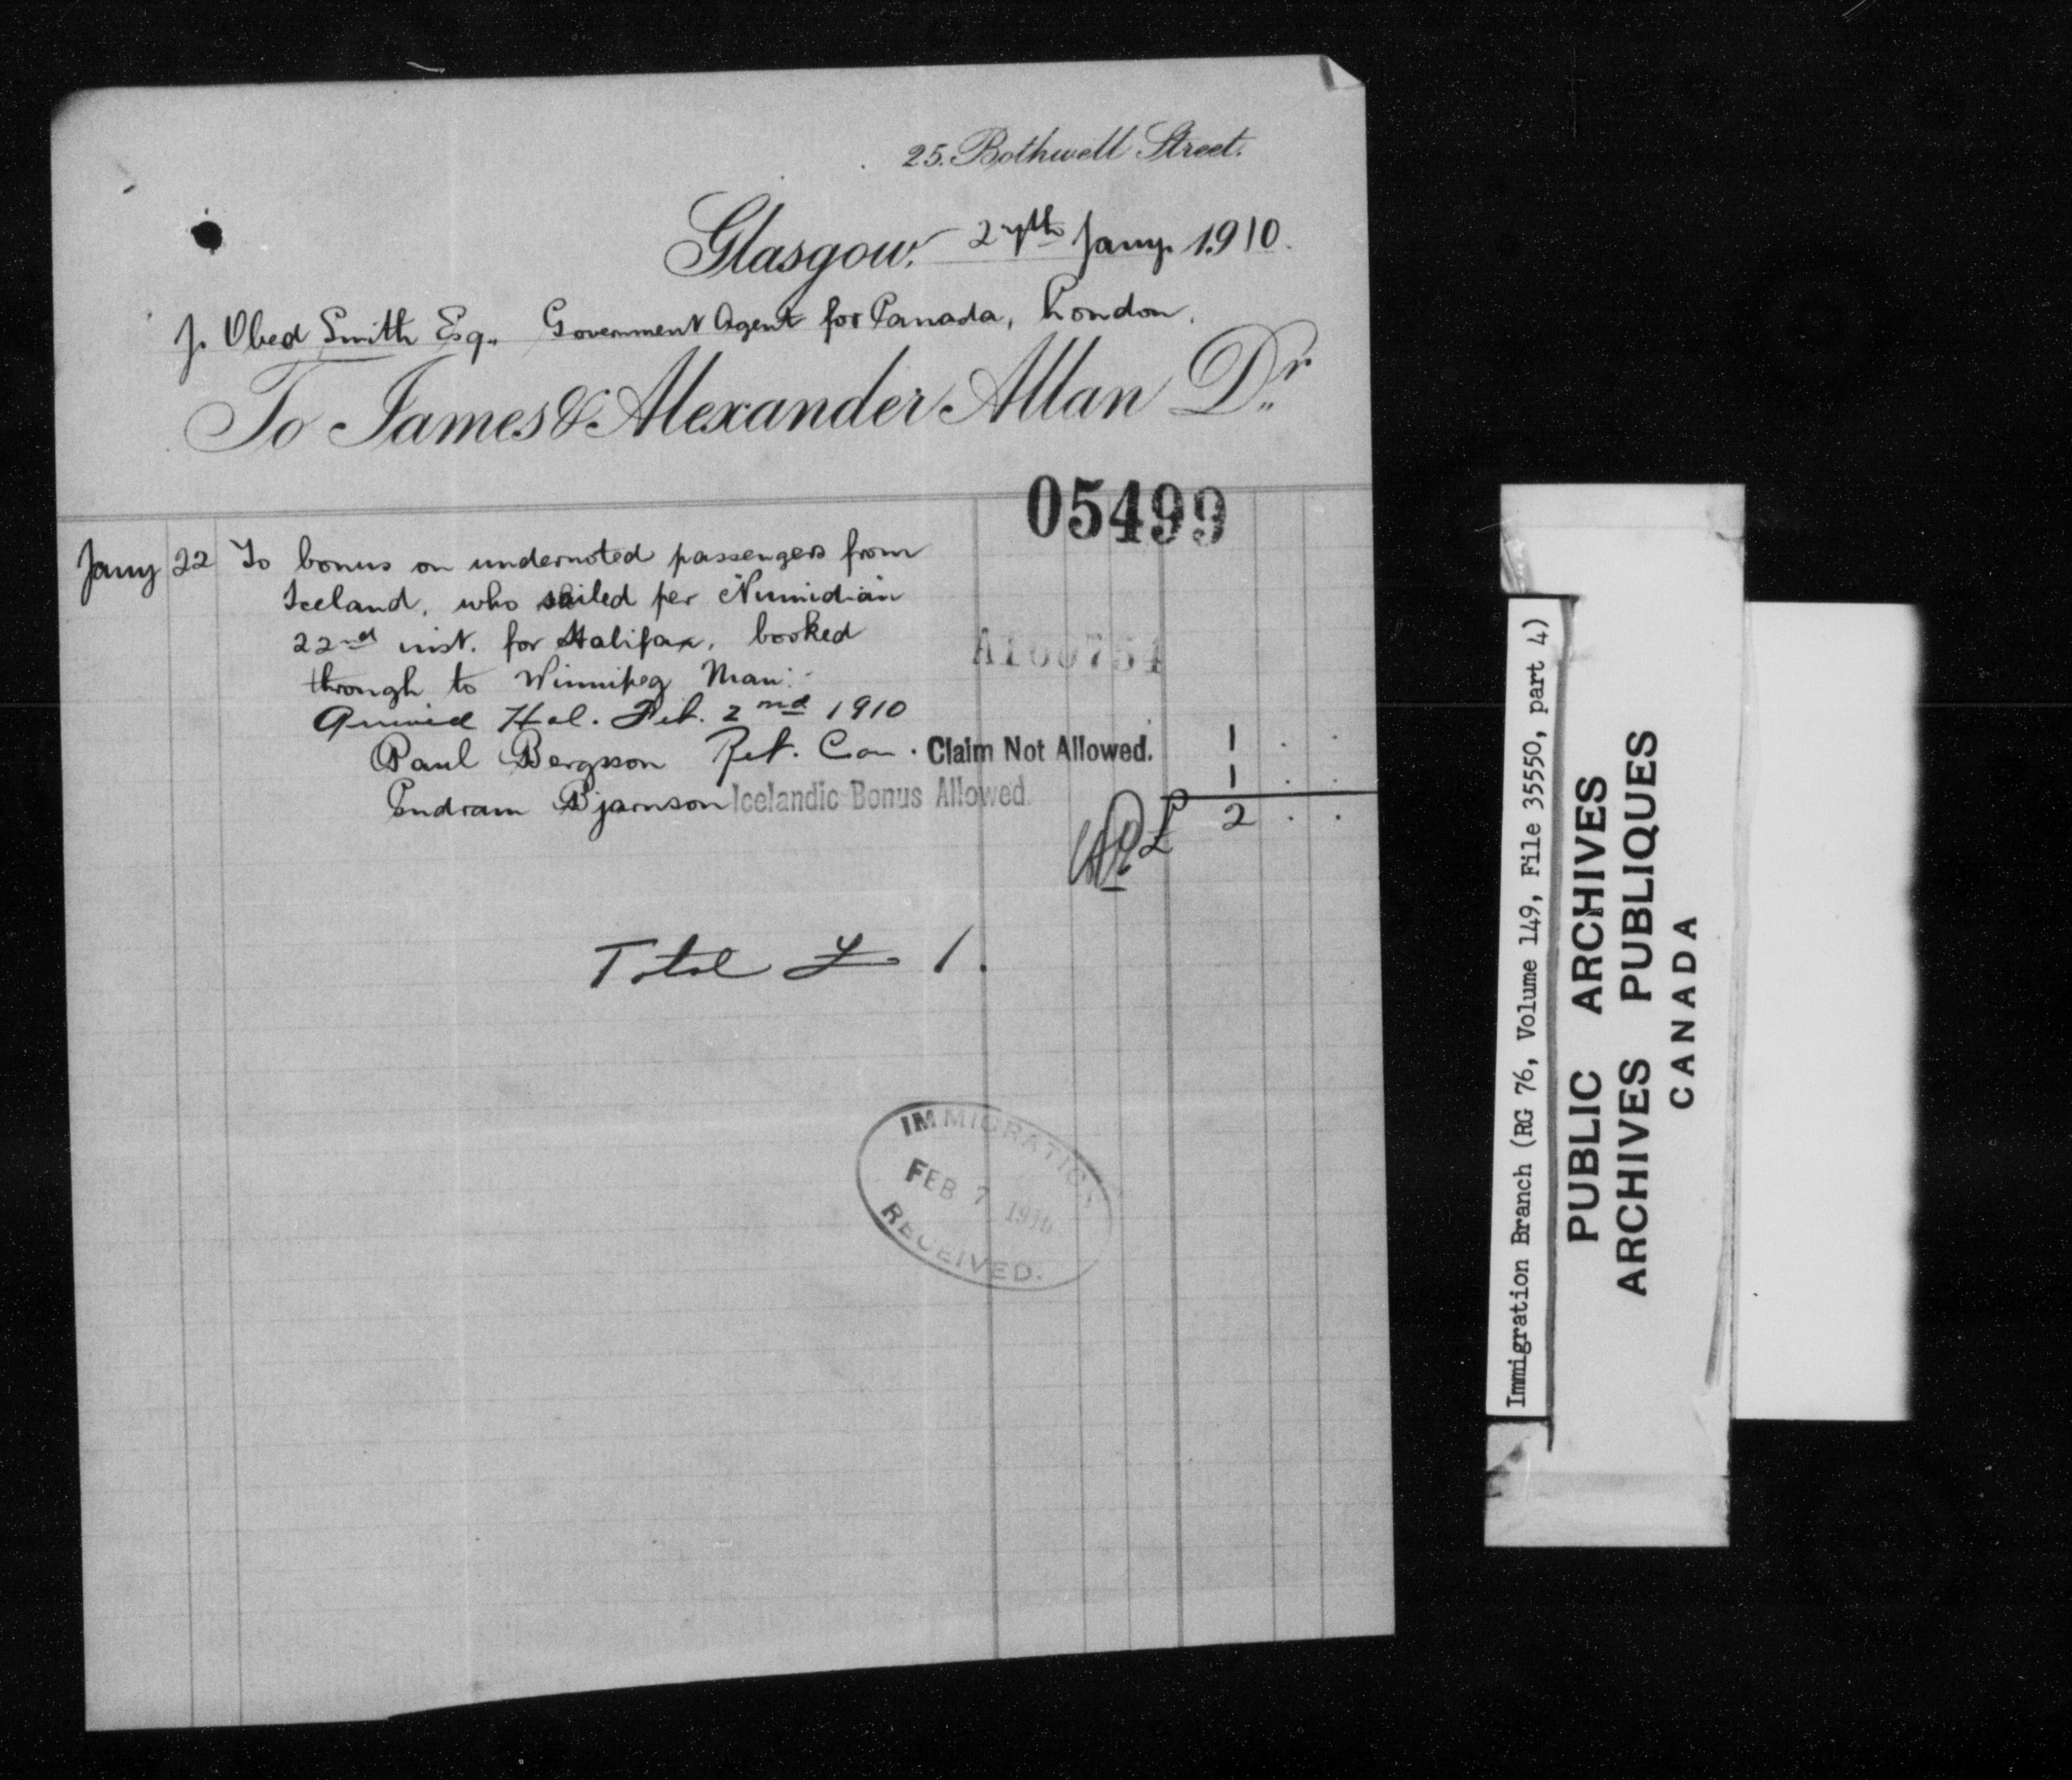 25. Bothwell Street.
Glasgow, 27th Jany. 1910.
J. Obed Smith Esq., Government Agent for Canada, London.
To James & Alexander Allan Dr.
05499
Jany 22 To bonus on undernoted passengers from
Iceland, who sailed per Numidian
22nd inst. for Halifax, booked
A100754
through to Winnipeg Man:-
Arrived Hal. Feb. 2nd 1910
Paul Bergsson Ret. Can. Claim Not Allowed. 1 . .
Bjarnson Icelandic Bonus Allowed. 1 . .
£ 2 . .
Total £ 1.
IMMIGRATION
FEB 7 1910
RECEIVED.
Immigration Branch (RG 76, Volume 149, File 35550, part 4)
PUBLIC ARCHIVES
ARCHIVES PUBLIQUES
CANADA